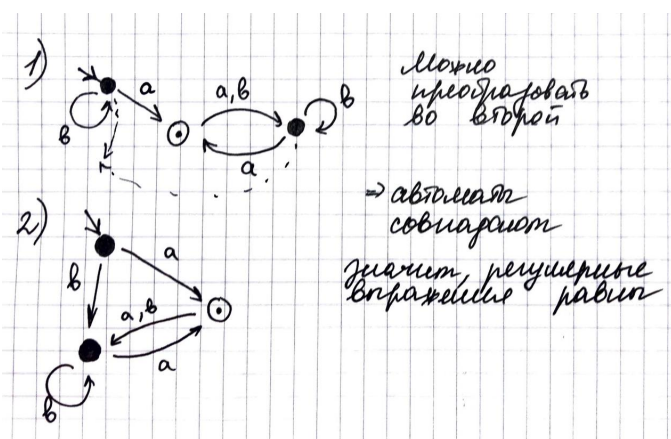 1)
a
а,в
в
в
a
Можно
преобразовать
во второй
=> автоматы
совпадают
2)
a
в
а,в
a
в
значит, регулярные
выражения равны